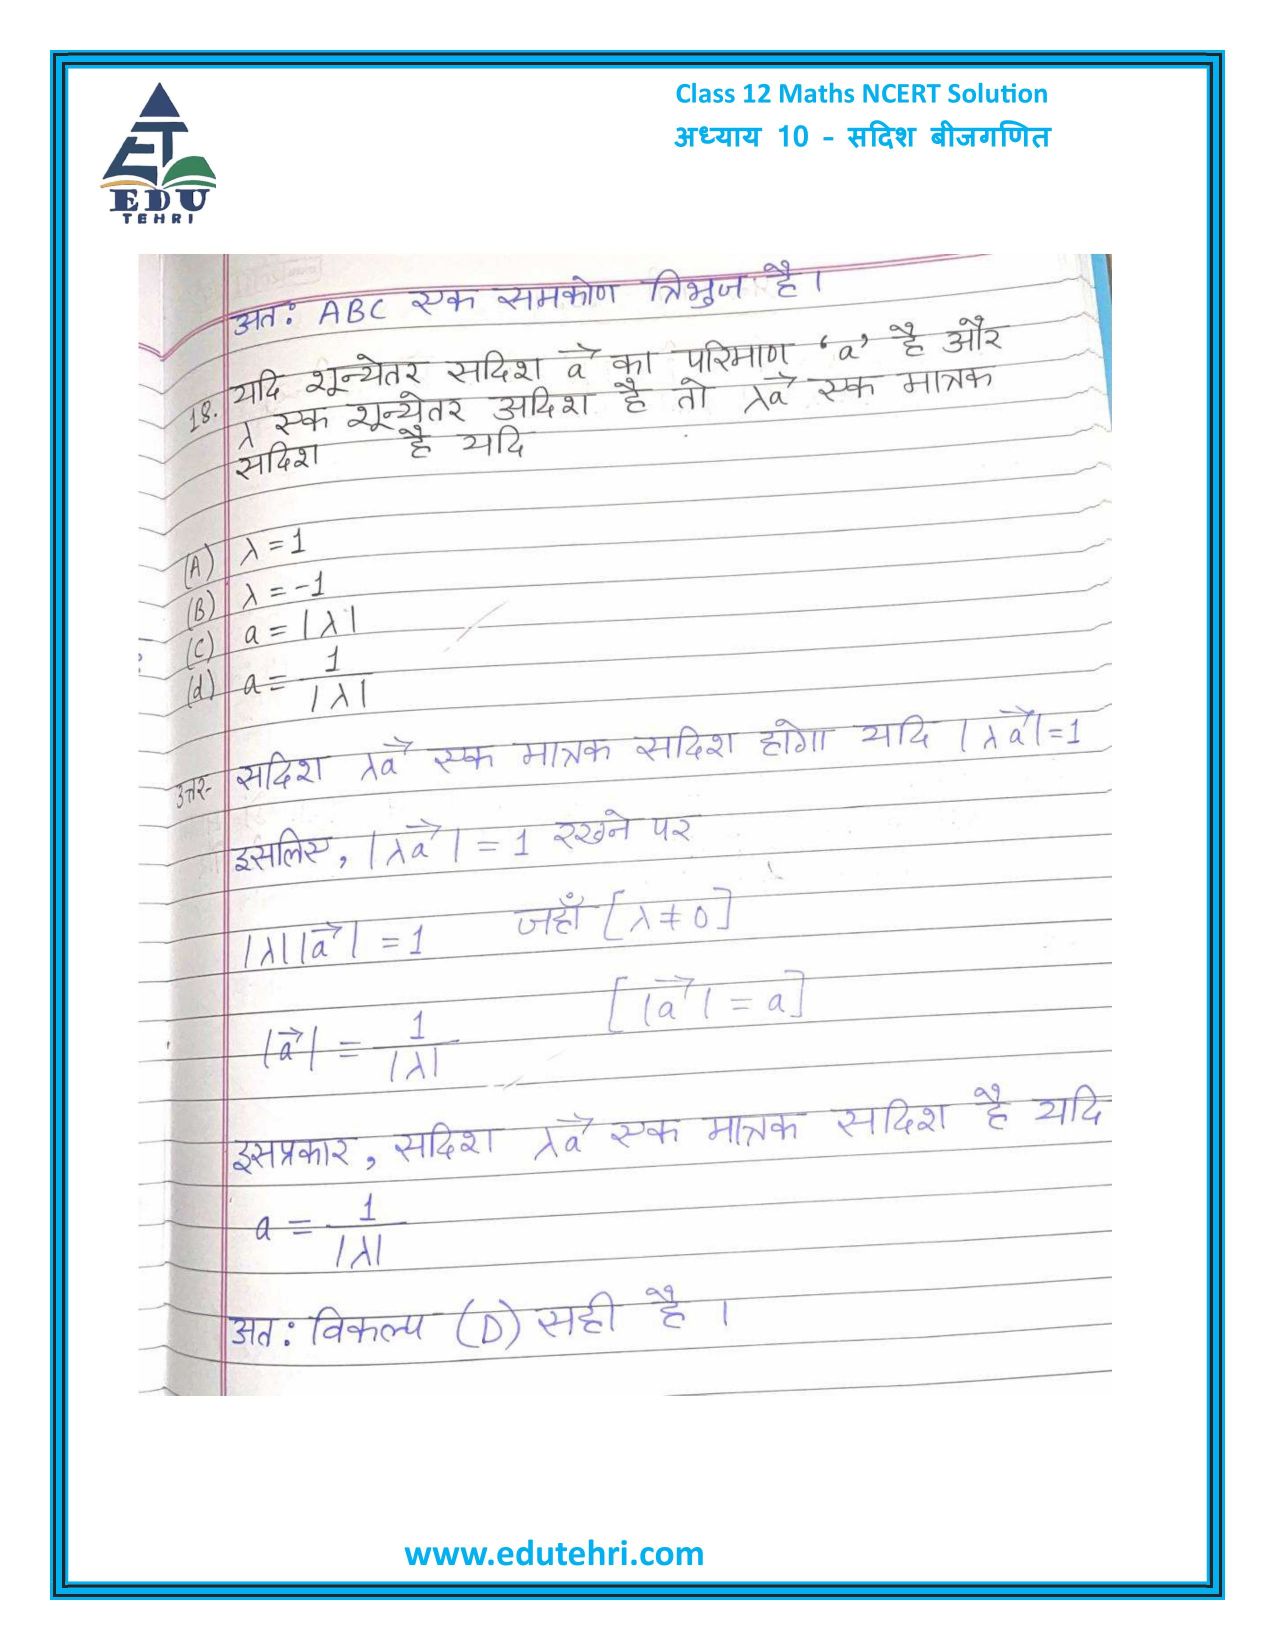 Class 12 Maths NCERT Solution
अध्याय 10 - सदिश बीजगणित
EDU
TEHRI
अतः ABC एक समकोण त्रिभुज है।
18. यदि शून्येतर सदिश a⃗ का परिमाण 'a' है और
λ एक शून्येतर अदिश है तो λa⃗ एक मात्रक
सदिश है यदि
(A) λ = 1
(B) λ = -1
(C) a = |λ|
(d) a = 1/|λ|
उत्तर- सदिश λa⃗ एक मात्रक सदिश होगा यदि |λa⃗|=1
इसलिए, |λa⃗| = 1 रखने पर
|λ||a⃗| = 1 जहाँ [λ ≠ 0]
|a⃗| = 1/|λ| [|a⃗| = a]
इसप्रकार, सदिश λa⃗ एक मात्रक सदिश है यदि
a = 1/|λ|
अतः विकल्प (D) सही है।
www.edutehri.com